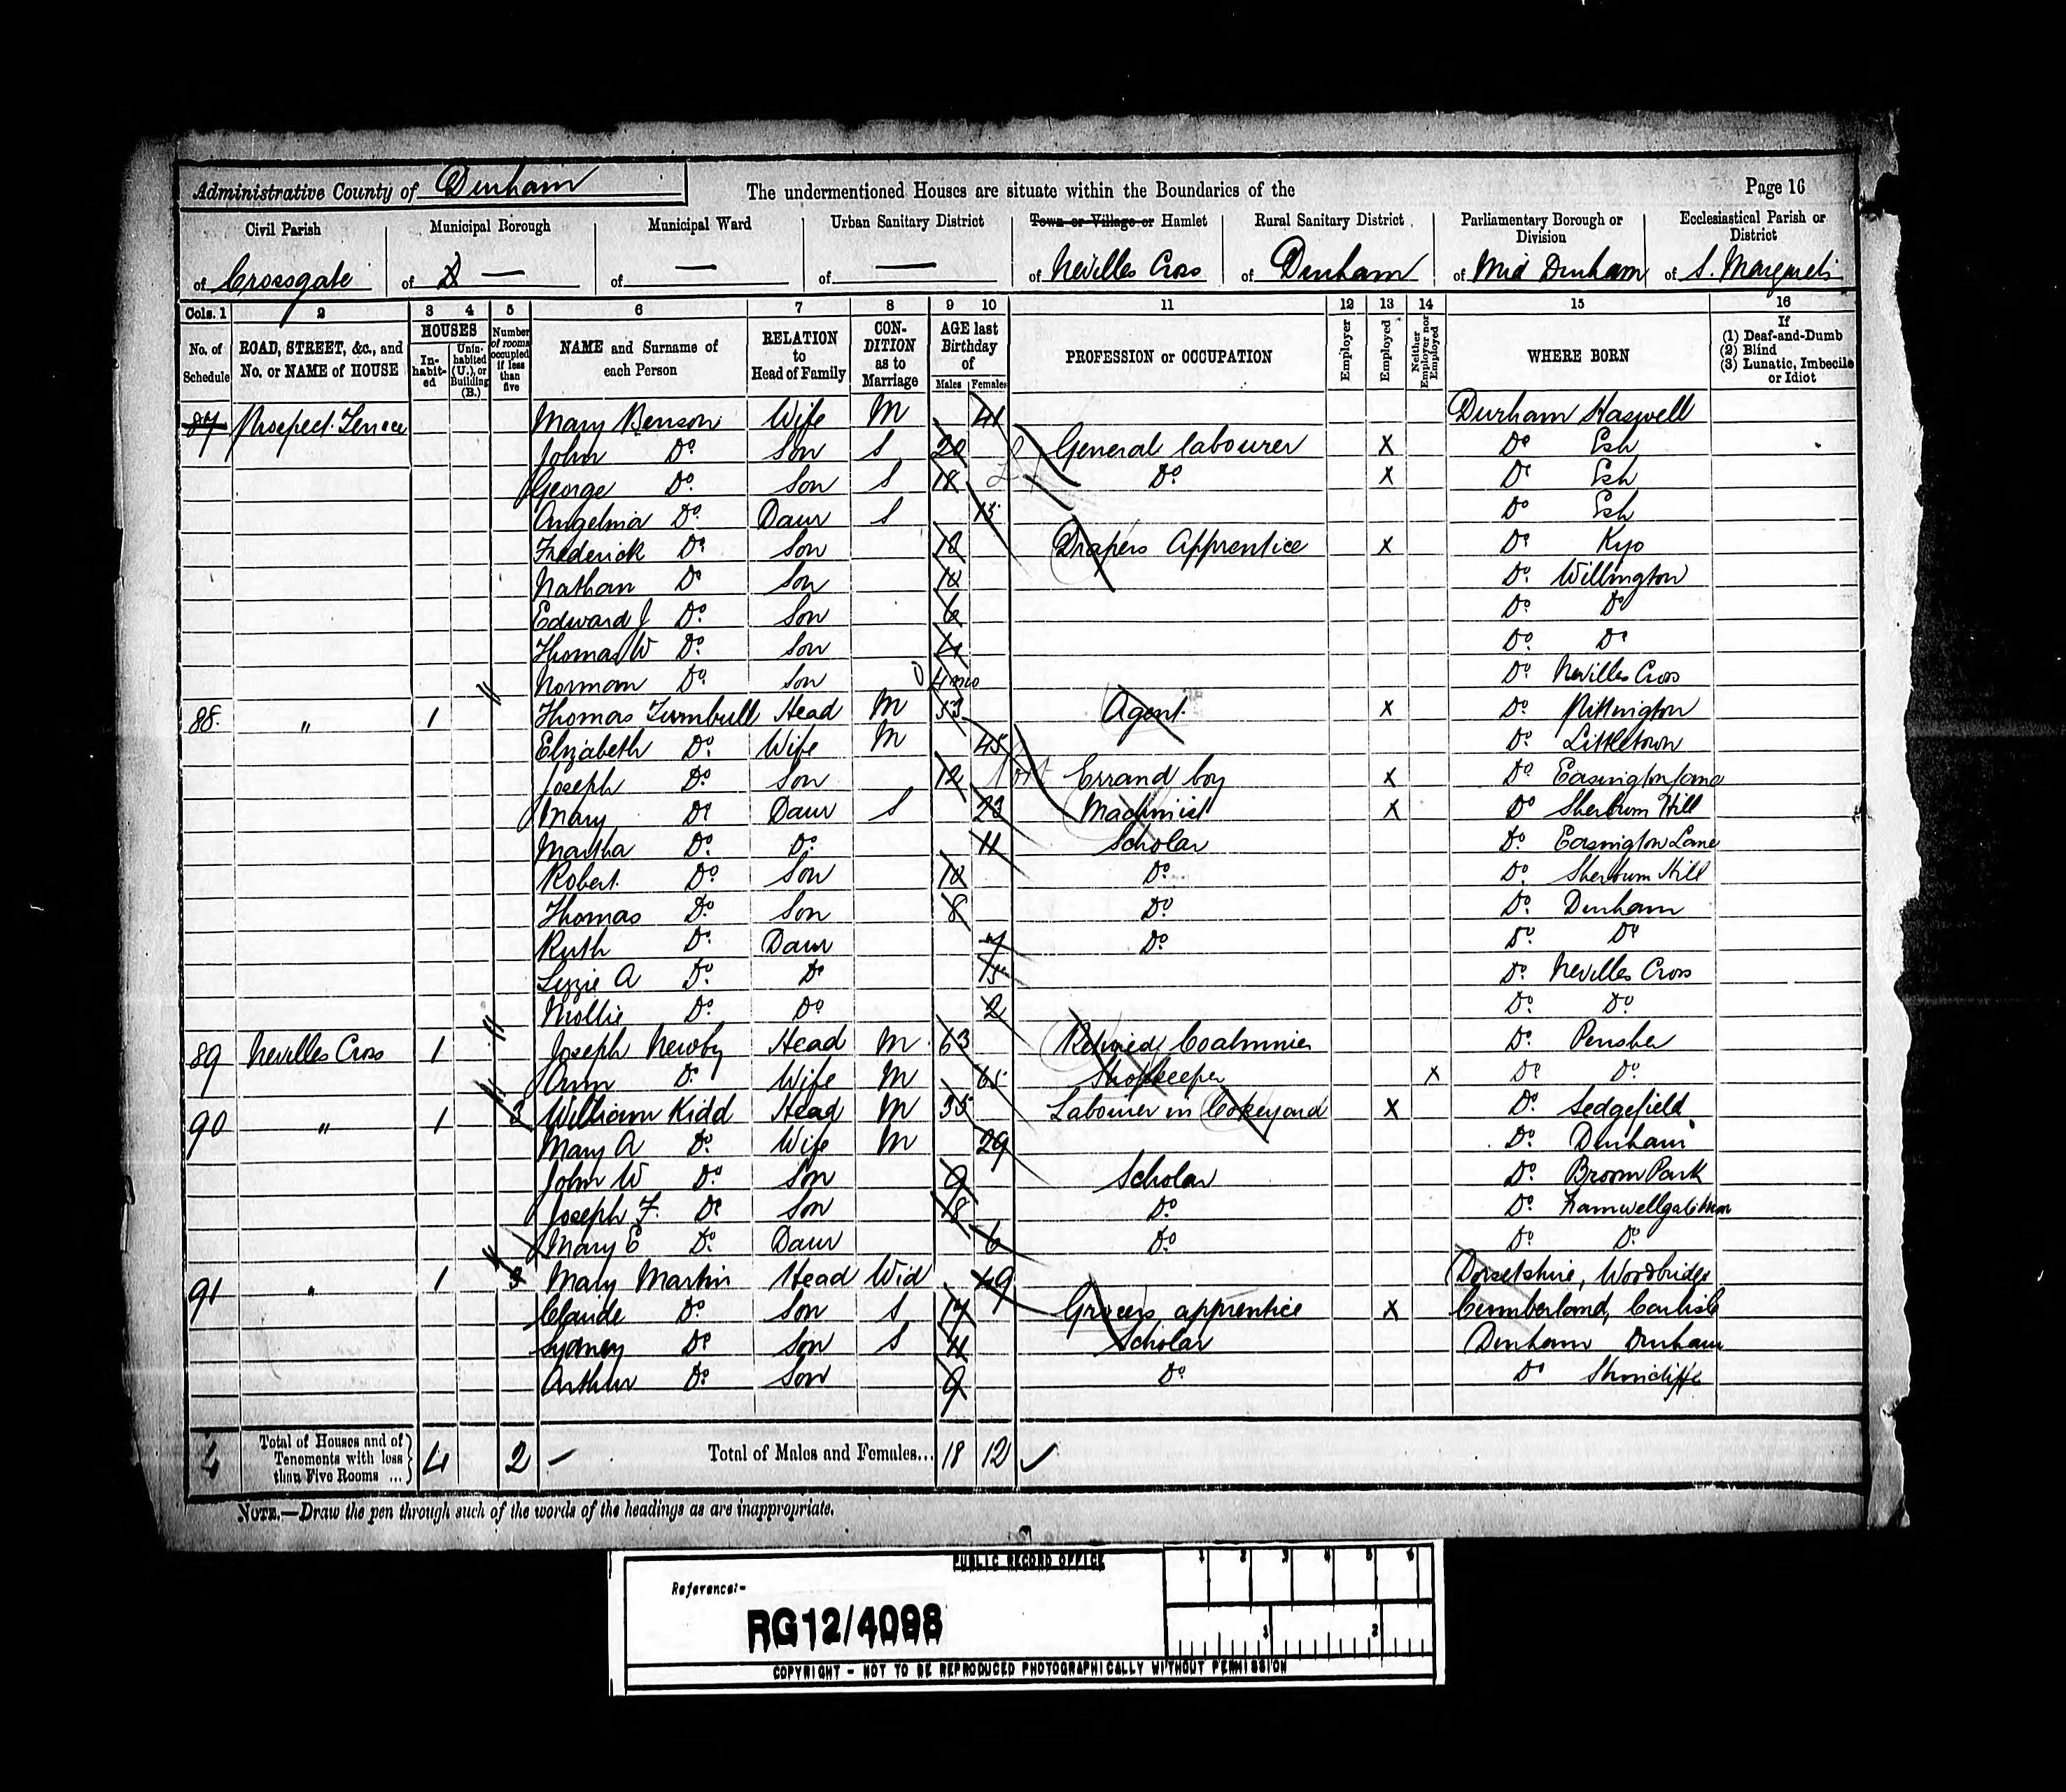 Administrative County of Durham The undermentioned Houses are situate within the Boundaries of the Page 16
Civil Parish Municipal Borough Municipal Ward Urban Sanitary District Town or Village or Hamlet Rural Sanitary District Parliamentary Borough or Division Ecclesiastical Parish or District
of Crossgate of — of — of — of Nevilles Cross of Durham of Mid Durham of S. Margarets
Cols. 1 2 3 4 5 6 7 8 9 10 11 12 13 14 15 16
No. of Schedule ROAD, STREET, &c., and No. or NAME of HOUSE HOUSES In-habit-ed Unin-habited (U.), or Building (B.) Number of rooms occupied if less than five NAME and Surname of each Person RELATION to Head of Family CON-DITION as to Marriage AGE last Birthday of Males Females PROFESSION or OCCUPATION Employer Employed Neither Employer nor Employed WHERE BORN If (1) Deaf-and-Dumb (2) Blind (3) Lunatic, Imbecile or Idiot
87 Prospect Terrace Mary Benson Wife M 41 Durham Haswell
John Do Son S 20 General labourer X Do Esh
George Do Son S 18 Do X Do Esh
Angelina Do Daur S 15 Do Esh
Frederick Do Son Drapers Apprentice X Do Kyo
Nathan Do Son 10 Do Willington
Edward J Do Son 6 Do Do
Thomas W Do Son 4 Do Do
Norman Do Son 4 mo Do Nevilles Cross
88 " 1 Thomas Turnbull Head M 53 Agent X Do Pittington
Elizabeth Do Wife M 45 Do Littletown
Joseph Do Son 12 Errand boy X Do Easington Lane
Mary Do Daur S 23 Machinist X Do Sherburn Hill
Martha Do Do 11 Scholar Do Easington Lane
Robert Do Son 10 Do Do Sherburn Hill
Thomas Do Son 8 Do Do Durham
Ruth Do Daur 7 Do Do Do
Lizzie A Do Do 5 Do Nevilles Cross
Mollie Do Do 2 Do Do
89 Nevilles Cross 1 Joseph Newby Head M 63 Retired Coalminer Do Pensher
Ann Do Wife M 65 Shopkeeper X Do Do
90 " 1 3 William Kidd Head M 35 Labourer in Cokeyard X Do Sedgefield
Mary A Do Wife M 29 Do Durham
John W Do Son 9 Scholar Do Broom Park
Joseph F. Do Son 8 Do Do Framwellgate Moor
Mary E Do Daur 6 Do Do Do
91 " 1 3 Mary Martin Head Wid 49 Dorsetshire, Woodbridge
Claude Do Son S 17 Grocers apprentice X Cumberland, Carlisle
Sydney Do Son S 11 Scholar Durham Durham
Arthur Do Son 9 Do Do Shincliffe
4 Total of Houses and of Tenements with less than Five Rooms ... 4 2 Total of Males and Females... 18 12
NOTE.—Draw the pen through such of the words of the headings as are inappropriate.
PUBLIC RECORD OFFICE
Reference:-
RG12/4098
COPYRIGHT - NOT TO BE REPRODUCED PHOTOGRAPHICALLY WITHOUT PERMISSION